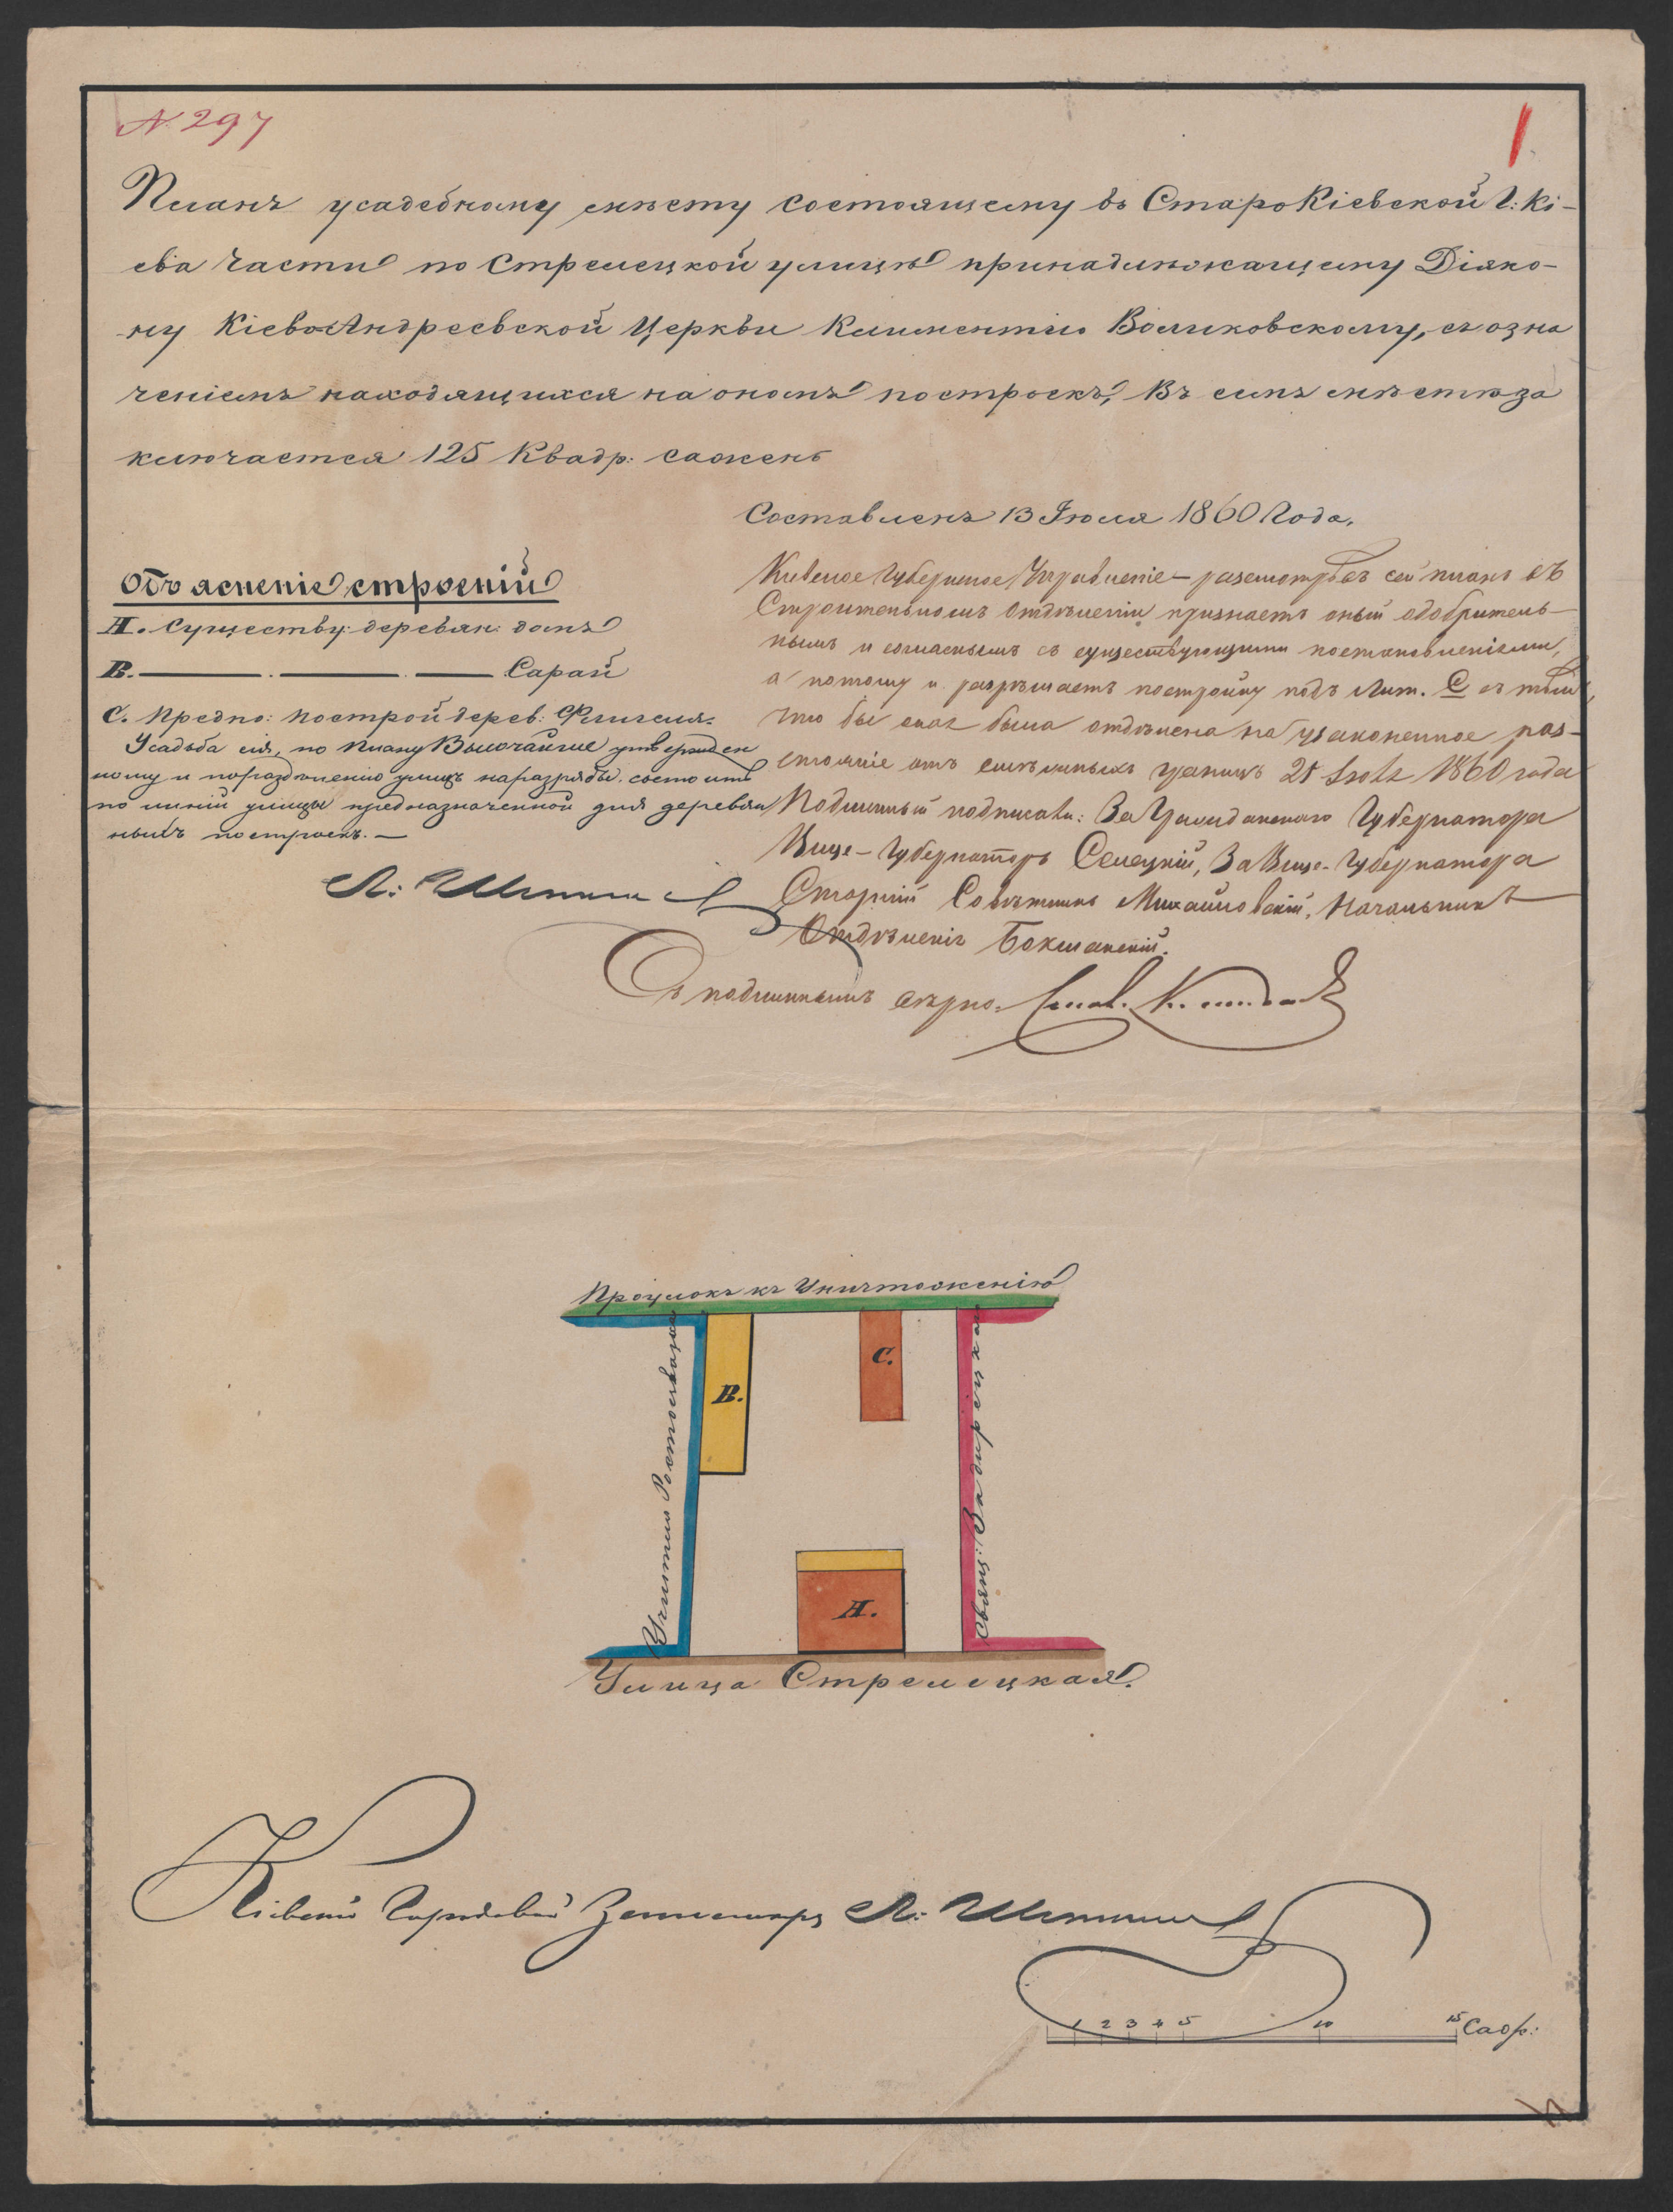 N 297
1
Планъ усадебному мѣсту состоящему въ СтароКіевской Г: Кі-
ева Части по Стрелецкой улицѣ принадлежащему Діяко-
ну Кіево Андреевской Церкви Климентію Воликовскому, съ озна
ченіемъ находящихся на ономъ построекъ, Въ семъ мѣстѣ за
ключается 125 Квадр: сажень
Составленъ 13 Іюля 1860 Года.
Объясненіе строеній
А. Существу: деревян: домъ
В. Сарай
С. Предпо: построй: дерев: Флигеля.
Усадьба сія, по плану Высочайше утвержден
ному и по раздѣленію улицъ на разряды, состоитъ
по линіи улицы предназначенной для деревян
ныхъ построекъ. —
Кіевское Губернское Управленіе — разсмотрѣвъ сей планъ въ
Строительномъ Отдѣленіи признаетъ оный одобритель-
нымъ и согласнымъ съ существующими постановленіями,
а потому и разрѣшаетъ постройку подъ Лит. С съ тѣмъ,
что бы она была отдѣлена на узаконенное раз-
стояніе отъ смѣжныхъ границъ 1860 года
Подлинный подписали: За Гражданскаго Губернатора
Вице-Губернаторъ Селецкій, За Вице-Губернатора
Старшій Совѣтникъ Михайловскій, Начальникъ
Отдѣленія Бокшанскій.
Съ подлиннымъ вѣрно:
Проулокъ къ Уничтоженію
В.
С.
А.
Учителя
Свящ:
Улица Стрелецкая.
Кіевскій Городовой Землемѣръ
1 2 3 4 5 10 15 Саж: